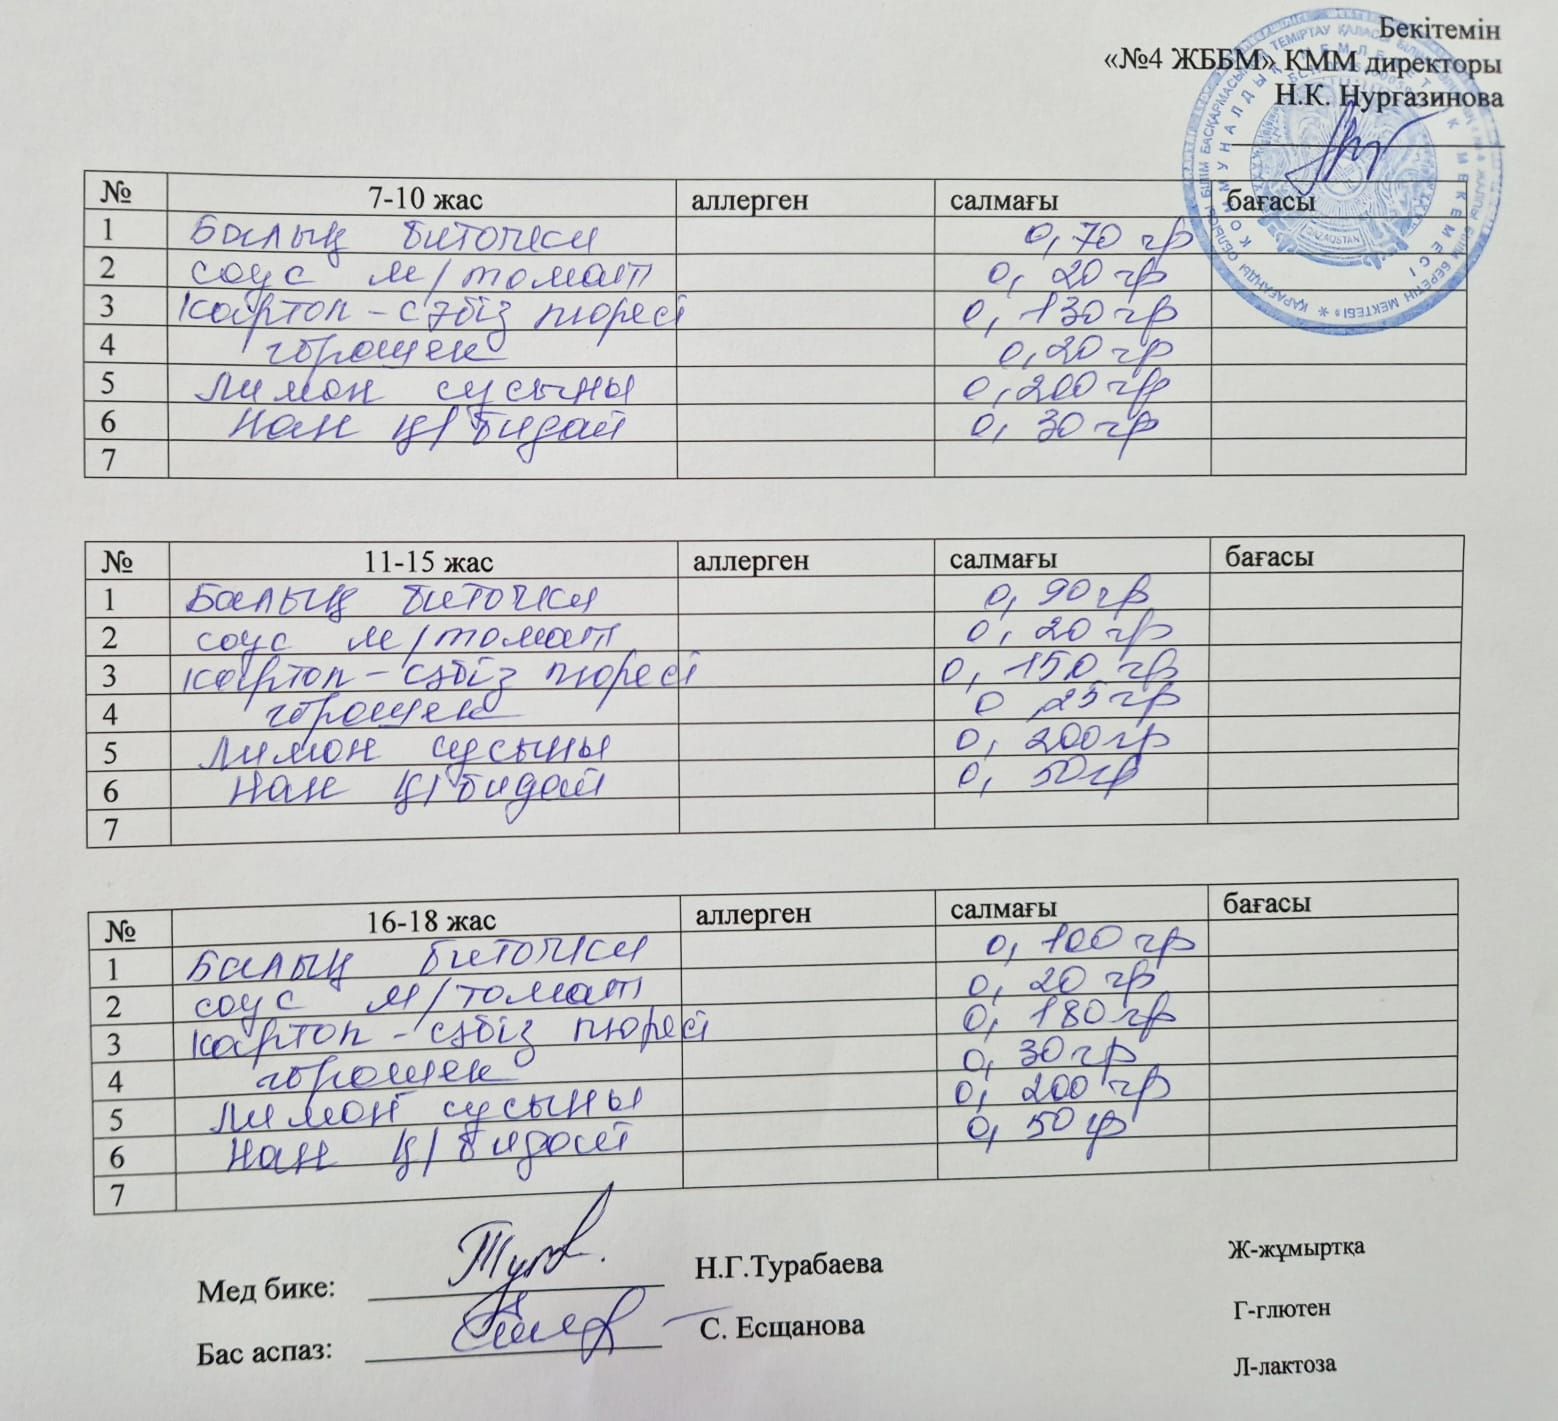 Бекітемін
«№4 ЖББМ» КММ директоры
Н.К. Нургазинова
№ 7-10 жас аллерген салмағы бағасы
1 Балық биточки 0,70 гр
2 соус м/томат 0, 20 гр
3 Картоп-сәбіз пюресі 0, 130 гр
4 горошек 0,20 гр
5 Лимон сусыны 0,200 гр
6 Нан қ/бидай 0, 30 гр
7
№ 11-15 жас аллерген салмағы бағасы
1 Балық биточки 0, 90 гр
2 соус м/томат 0, 20 гр
3 Картоп-сәбіз пюресі 0, 150 гр
4 горошек 0,25 гр
5 Лимон сусыны 0, 200 гр
6 Нан қ/бидай 0, 50 гр
7
№ 16-18 жас аллерген салмағы бағасы
1 Балық биточки 0, 100 гр
2 соус м/томат 0, 20 гр
3 Картоп-сәбіз пюресі 0, 180 гр
4 горошек 0, 30 гр
5 Лимон сусыны 0, 200 гр
6 Нан қ/бидай 0, 50 гр
7
Мед бике: Н.Г.Турабаева
Бас аспаз: С. Есщанова
Ж-жұмыртқа
Г-глютен
Л-лактоза